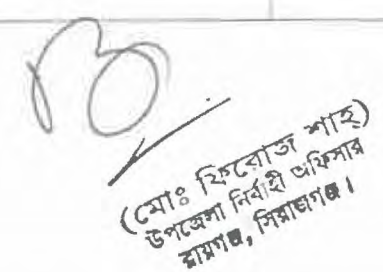 (মোঃ ফিরোজ শাহ্)
উপজেলা নির্বাহী অফিসার
রায়গঞ্জ, সিরাজগঞ্জ।